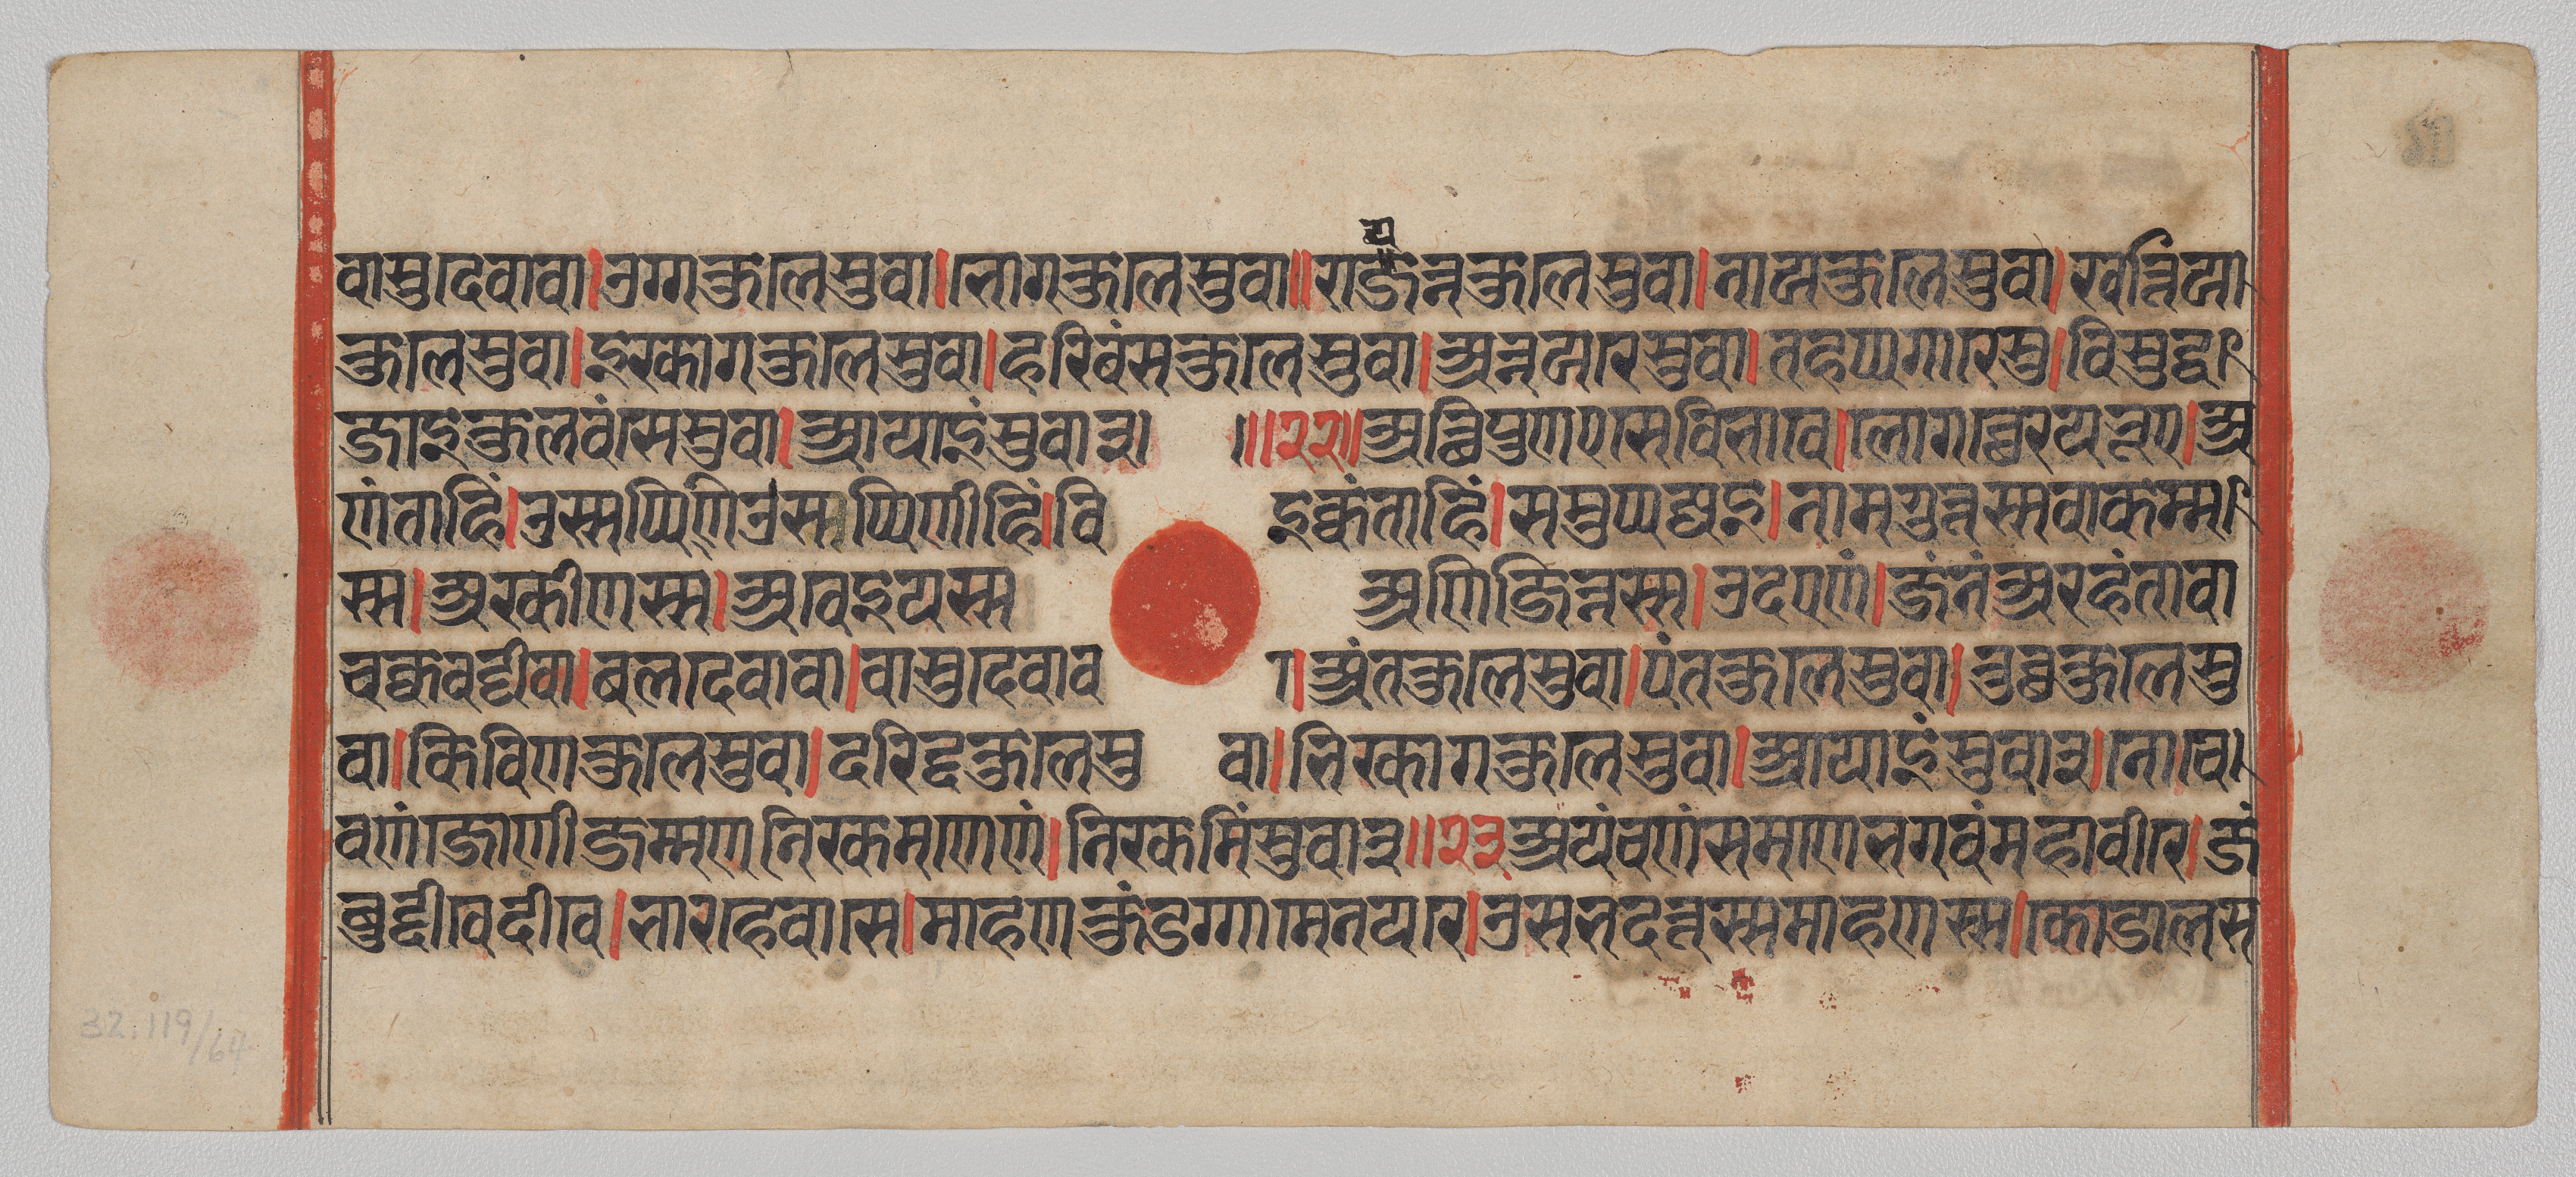 य
वासुदेवावा।उग्गकुलेसुवा।भोगकुलेसुवा॥राजन्नकुलेसुवा।नायकुलेसुवा।खत्तिय
कुलेसुवा।इरकागकुलेसुवा।हरिवंसकुलेसुवा।अन्नयरेसुवा।तहप्पगारेसु।विसुद्ध
जाइकुलवंसेसुवा।आयाइंसुवा३। ॥२२॥अत्थिपुणएसेविभावे।लोगच्छेरयभूए।अ
णंताहिं।उस्सप्पिणिउस्सप्पिणीहिं।वि इक्कंताहिं।समुप्पज्जइ।नामगुत्तस्सवाकम्म
स्स।अरकीणस्स।अवेइयस्स अणिज्जिन्नस्स।उदएणं।जंनंअरहंतावा
चक्कवट्टीवा।बलदेवावा।वासुदेवाव ा।अंतकुलेसुवा।पंतकुलेसुवा।तुच्छकुलेसु
वा।किविणकुलेसुवा।दरिद्दकुलेसु वा।भिरकागकुलेसुवा।आयाइंसुवा३।नोचे
वणंजोणीजम्मणनिरकमणेणं।निरकमिंसुवा३॥२३अयंचणंसमणेभगवंमहावीरे।जं
बुद्दीवेदीवे।भारहेवासे।माहणकुंडग्गामेनयरे।उसभदत्तस्समाहणस्स।कोडालस
32.119/64